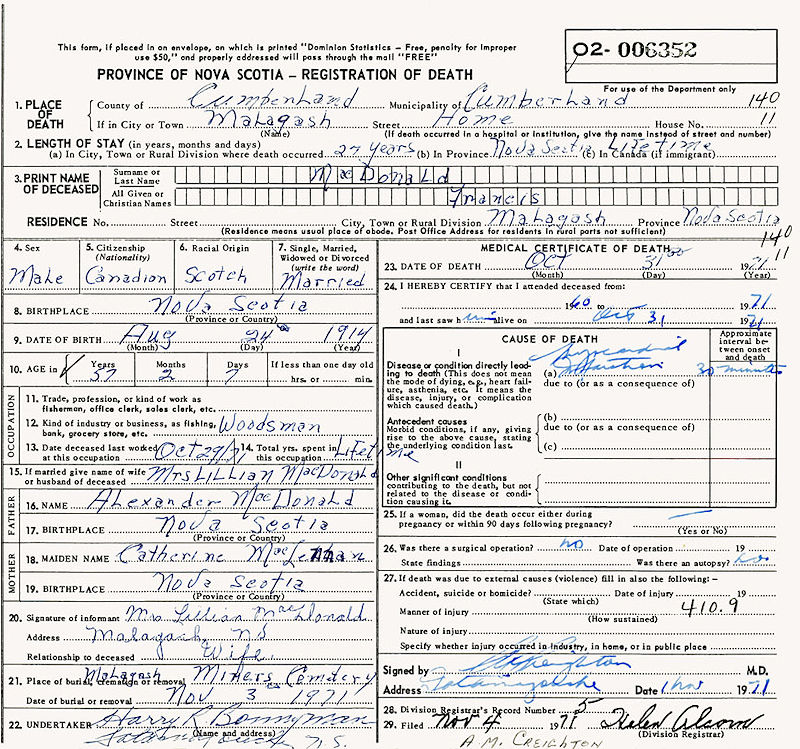 This form, if placed in an envelope, on which is printed "Dominion Statistics – Free, penalty for improper
use $50," and properly addressed will pass through the mail "FREE"
02- 006352
PROVINCE OF NOVA SCOTIA – REGISTRATION OF DEATH
For use of the Department only
1. PLACE OF DEATH
County of Cumberland Municipality of Cumberland 140
If in City or Town Malagash Street Home House No. 11
(Name) (If death occurred in a hospital or institution, give the name instead of street and number)
2. LENGTH OF STAY (in years, months and days)
(a) In City, Town or Rural Division where death occurred 27 years (b) In Province Nova Scotia (c) In Canada (if immigrant) Lifetime
3. PRINT NAME OF DECEASED
Surname or Last Name MacDonald
All Given or Christian Names Francis
RESIDENCE No. Street City, Town or Rural Division Malagash Province Nova Scotia
(Residence means usual place of abode. Post Office Address for residents in rural parts not sufficient)
140
11
4. Sex Male
5. Citizenship (Nationality) Canadian
6. Racial Origin Scotch
7. Single, Married, Widowed or Divorced (write the word) Married
8. BIRTHPLACE Nova Scotia
(Province or Country)
9. DATE OF BIRTH Aug 24 1914
(Month) (Day) (Year)
10. AGE in Years 57 Months 2 Days 7 If less than one day old hrs. or min.
OCCUPATION
11. Trade, profession, or kind of work as
fisherman, office clerk, sales clerk, etc.
12. Kind of industry or business, as fishing,
bank, grocery store, etc. Woodsman
13. Date deceased last worked at this occupation Oct 29/71
14. Total yrs. spent in this occupation Lifetime
15. If married give name of wife
or husband of deceased Mrs Lillian MacDonald
FATHER
16. NAME Alexander MacDonald
17. BIRTHPLACE Nova Scotia
(Province or Country)
MOTHER
18. MAIDEN NAME Catherine
19. BIRTHPLACE Nova Scotia
(Province or Country)
20. Signature of informant Mrs Lillian MacDonald
Address Malagash, N.S
Relationship to deceased Wife
21. Place of burial, cremation or removal Malagash Miners Cemetry
Date of burial or removal Nov 3 1971
22. UNDERTAKER Harry R Bonnyman
(Name and address)
Tatamagouche N.S.
MEDICAL CERTIFICATE OF DEATH
23. DATE OF DEATH Oct 31 1971
(Month) (Day) (Year)
24. I HEREBY CERTIFY that I attended deceased from:
1960 to 1971
and last saw him alive on Oct 31 1971
CAUSE OF DEATH
Approximate interval between onset and death
I
Disease or condition directly leading to death (This does not
mean the mode of dying, e.g., heart failure,
asthenia, etc. It means the
disease, injury, or complication
which caused death.)
(a) Myocardial Infarction 30 minutes
due to (or as a consequence of)
Antecedent causes
Morbid conditions, if any, giving
rise to the above cause, stating
the underlying condition last.
(b)
due to (or as a consequence of)
(c)
II
Other significant conditions
contributing to the death, but not
related to the disease or condition
causing it.
25. If a woman, did the death occur either during
pregnancy or within 90 days following pregnancy? —
(Yes or No)
26. Was there a surgical operation? no Date of operation 19
State findings Was there an autopsy? no
27. If death was due to external causes (violence) fill in also the following: –
Accident, suicide or homicide? Date of injury 19
(State which)
Manner of injury 410.9
(How sustained)
Nature of injury
Specify whether injury occurred in industry, in home, or in public place
Signed by Creighton M.D.
Address Tatamagouche Date 1 Nov 1971
28. Division Registrar's Record Number 5
29. Filed Nov 4 1971 Helen
(Division Registrar)
A.M. CREIGHTON